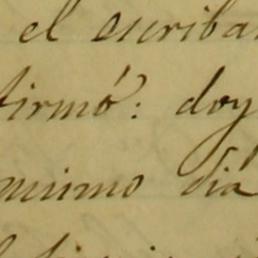 el escriba
firmó: doy
mismo dia